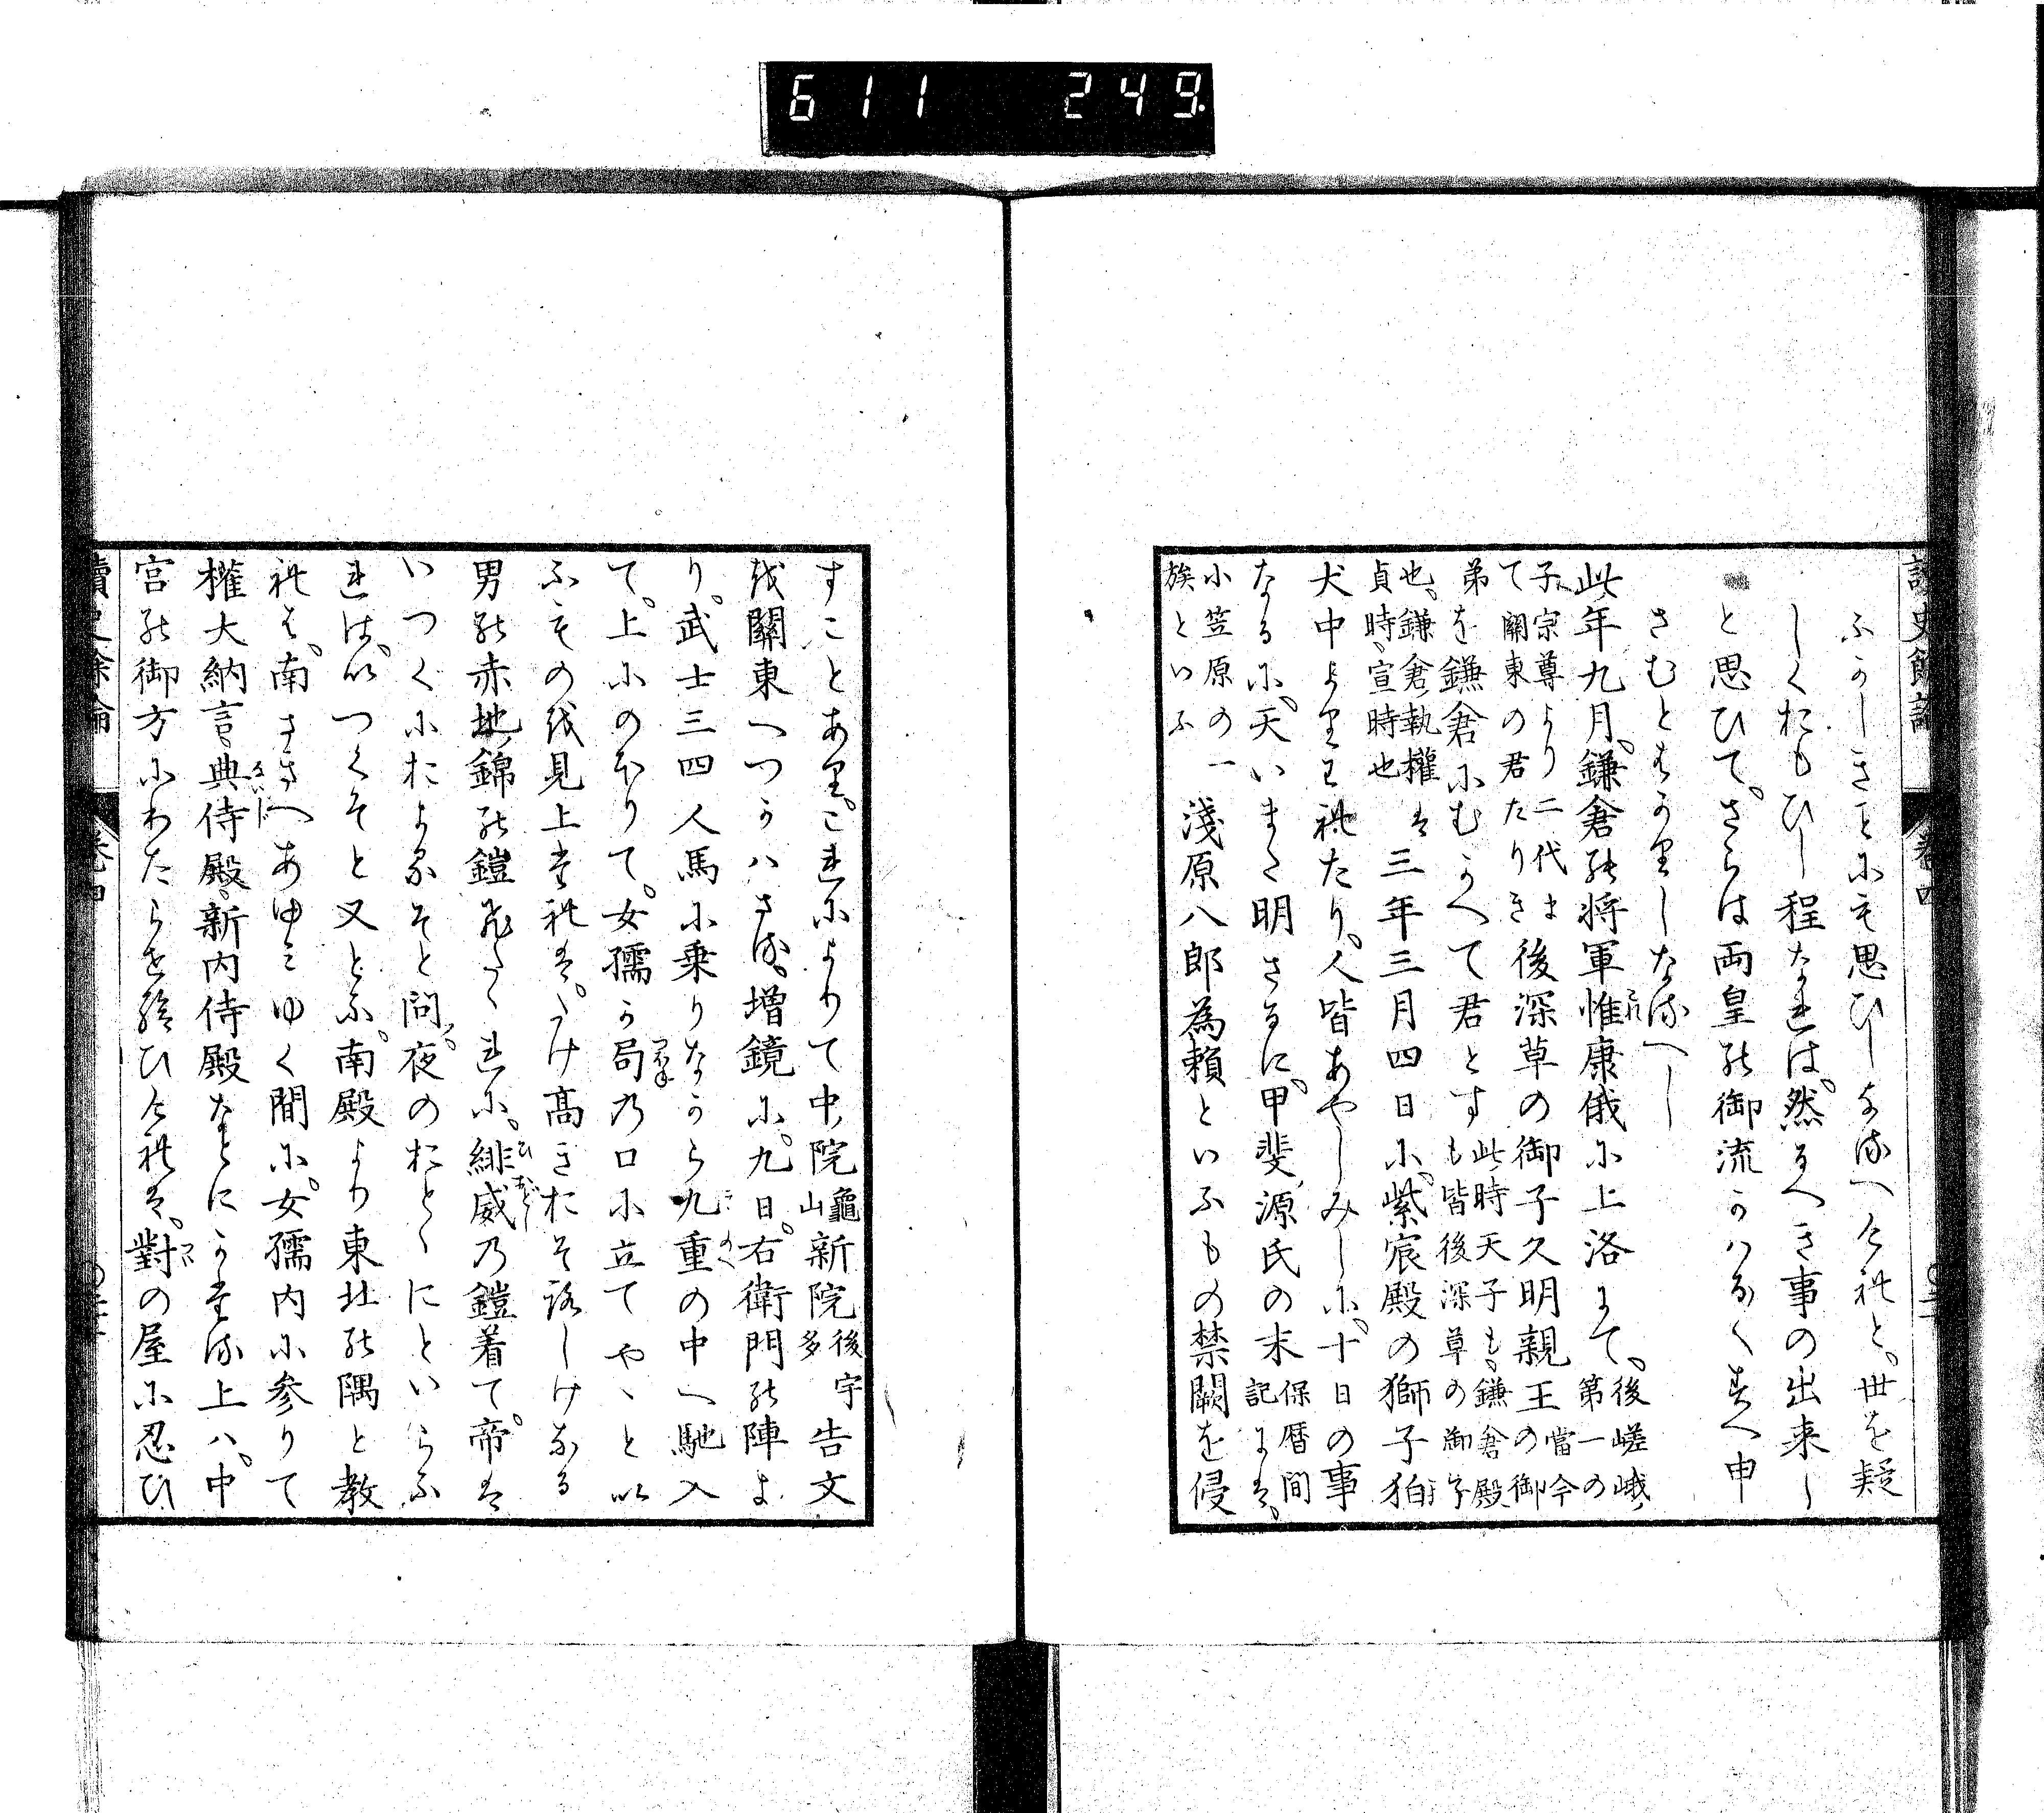 6 1 1 2 4 9.
讀史餘論 卷四
ふかしきことにも思ひしなるへけれと。世を疑
しくおもひし程なれは。然るへき事の出来し
と思ひて。さらは両皇の御流かはるく すへ申
さむとはかりしなるへし
此年九月。鎌倉の将軍惟康俄に上洛まて。後嵯峨第一の
子宗尊より二代まて關東の君たりき後深草の御子久明親王當今の御
弟を鎌倉にむかへて君とす此時天子も。鎌倉殿も皆後深草の御子
也。鎌倉執權は貞時宣時也三年三月四日に。紫宸殿の獅子狛
犬中よりわれたり。人皆あやしみしに。十日の事
なるに。天いまた明さるに。甲斐源氏の末保暦間記には。
小笠原の一族といふ淺原八郎為頼といふもの禁闕を侵
すことあり。これによりて中院龜山新院後宇多告文
を關東へつかハさる。増鏡に。九日。右衛門の陣よ
り。武士三四人馬に乗りなから九重の中へ馳入
て。上にのほりて。女孺か局の口に立てやゝとい
ふものを見上たれは。たけ高きおそろしけなる
男の赤地錦の鎧ひたゝれに。緋威の鎧着て。帝は
いつくにおよるそと問。夜のおとゝにといらふ
れは。いつくそと又とふ。南殿より東北の隅と教
れは。南さまへあゆみゆく間に。女孺内に参りて
權大納言典侍殿。新内侍殿なとにかたる上ハ。中
宮の御方にわたらせ給ひけれは。對の屋に忍ひ
讀史餘論 卷四